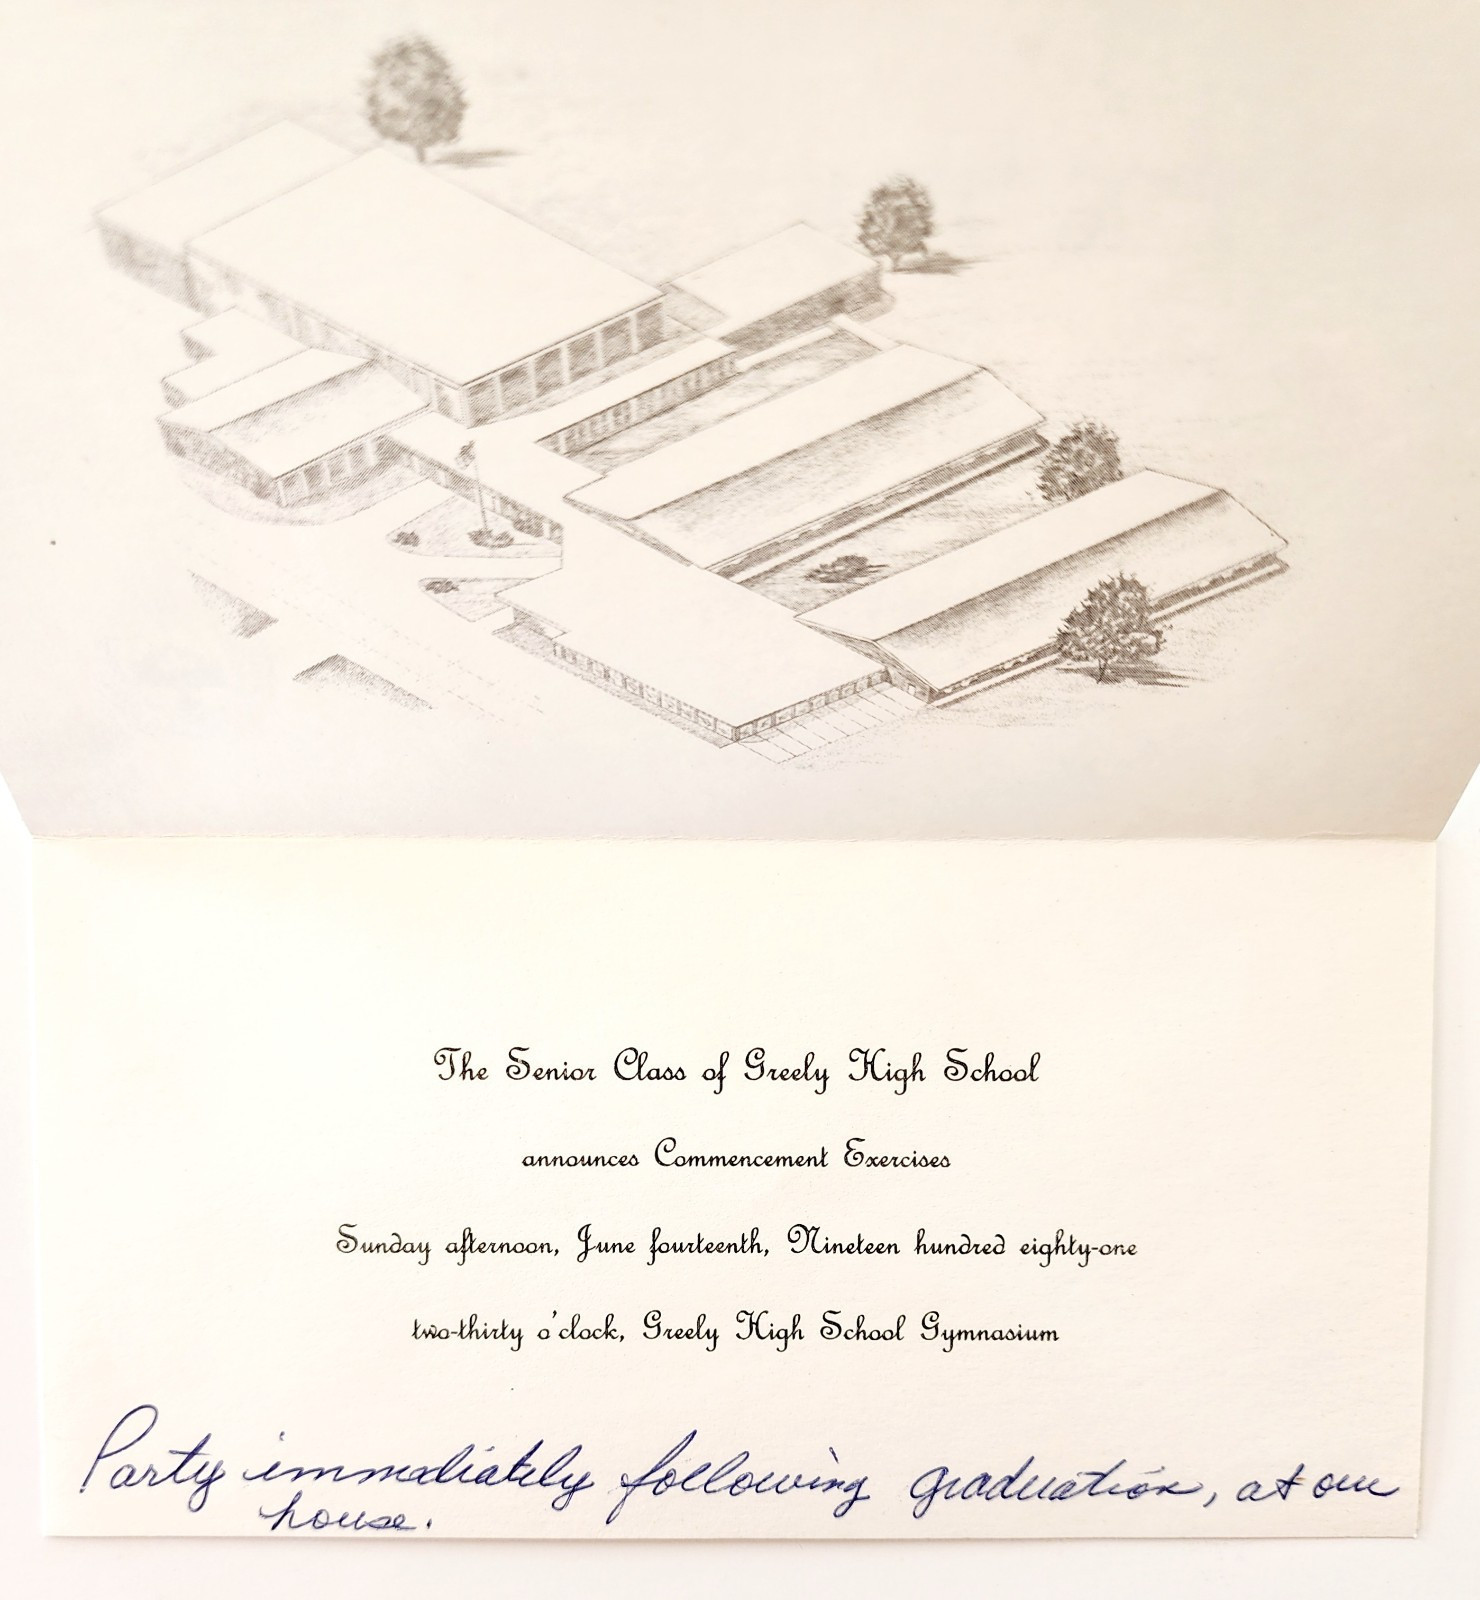 The Senior Class of Greely High School
announces Commencement Exercises
Sunday afternoon, June fourteenth, Nineteen hundred eighty-one
two-thirty o'clock, Greely High School Gymnasium
Party immediately following graduation, at our
house.